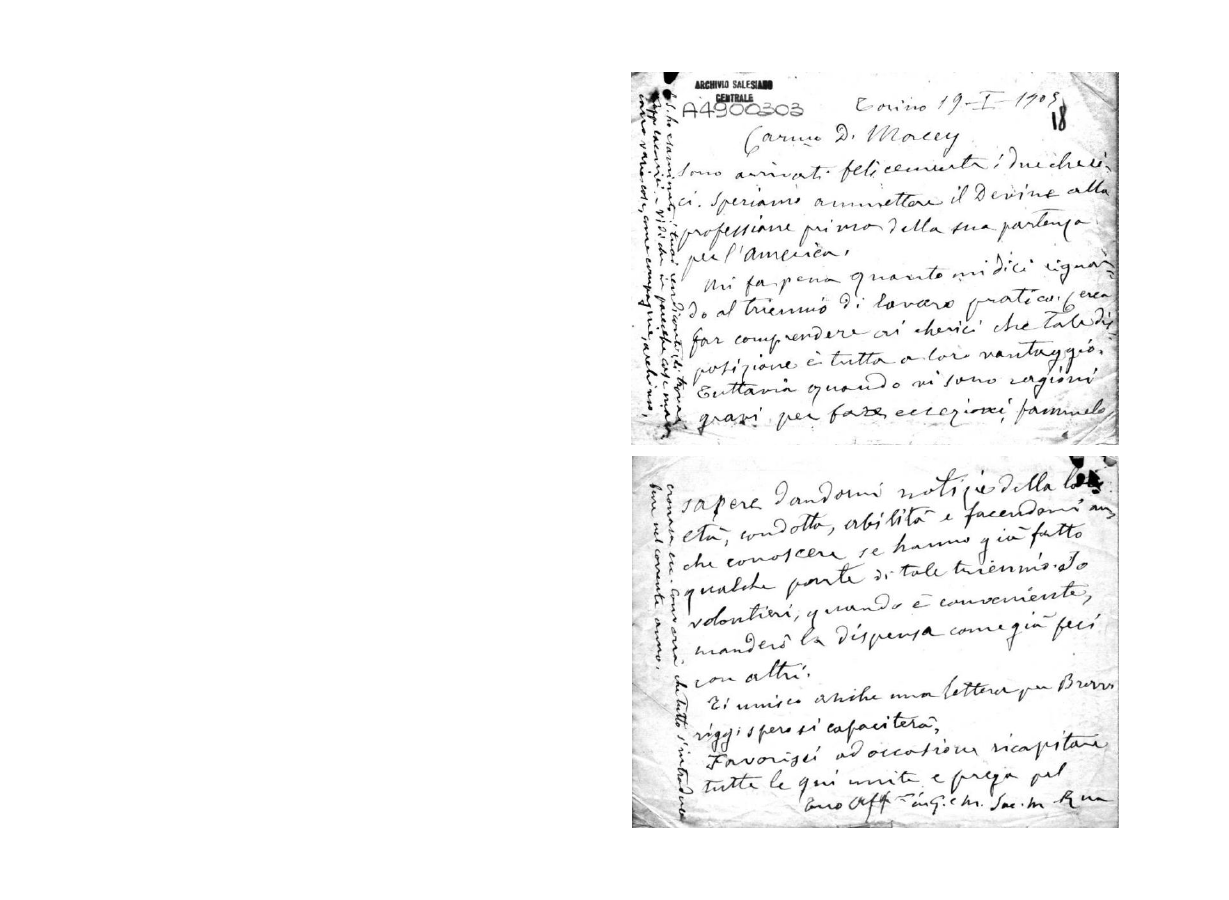 ARCHIVIO SALESIANO
CENTRALE
A4900303
Torino 19-I-1905
18
Carmo D. Macey
Sono arrivati felicemente i due cheri-
ci. Speriamo ammettere il Devine alla
professione prima della sua partenza
per l'America.
Mi fa pena quanto mi dici riguar-
do al triennio di lavoro pratico. Cerca
far comprendere ai chierici che tale dis-
posizione è tutta a loro vantaggio.
Tuttavia quando vi sono ragioni
gravi per fare eccezioni, fammelo
sapere dandomi notizie della loro
età, condotta, abilità e facendomi an
che conoscere se hanno già fatto
qualche parte di tale triennio. Io
volontieri, quando è conveniente,
manderò la dispensa come già feci
con altri.
Ti unisco anche una lettera per
spero si capaciterà,
Favorisci ad occasione ricapitare
tutte le qui unite e prega pel
tuo Aff in G. e M. Sac. M. Rua
P.S. ho esaminato i tuoi rendiconti, li trovai
troppo laconici. Vidi che in parecchie case man
cano varie cose, come compagnie, archivio,
cronaca, ecc. Converrà che tutto s'introduca
bene nel corrente anno.